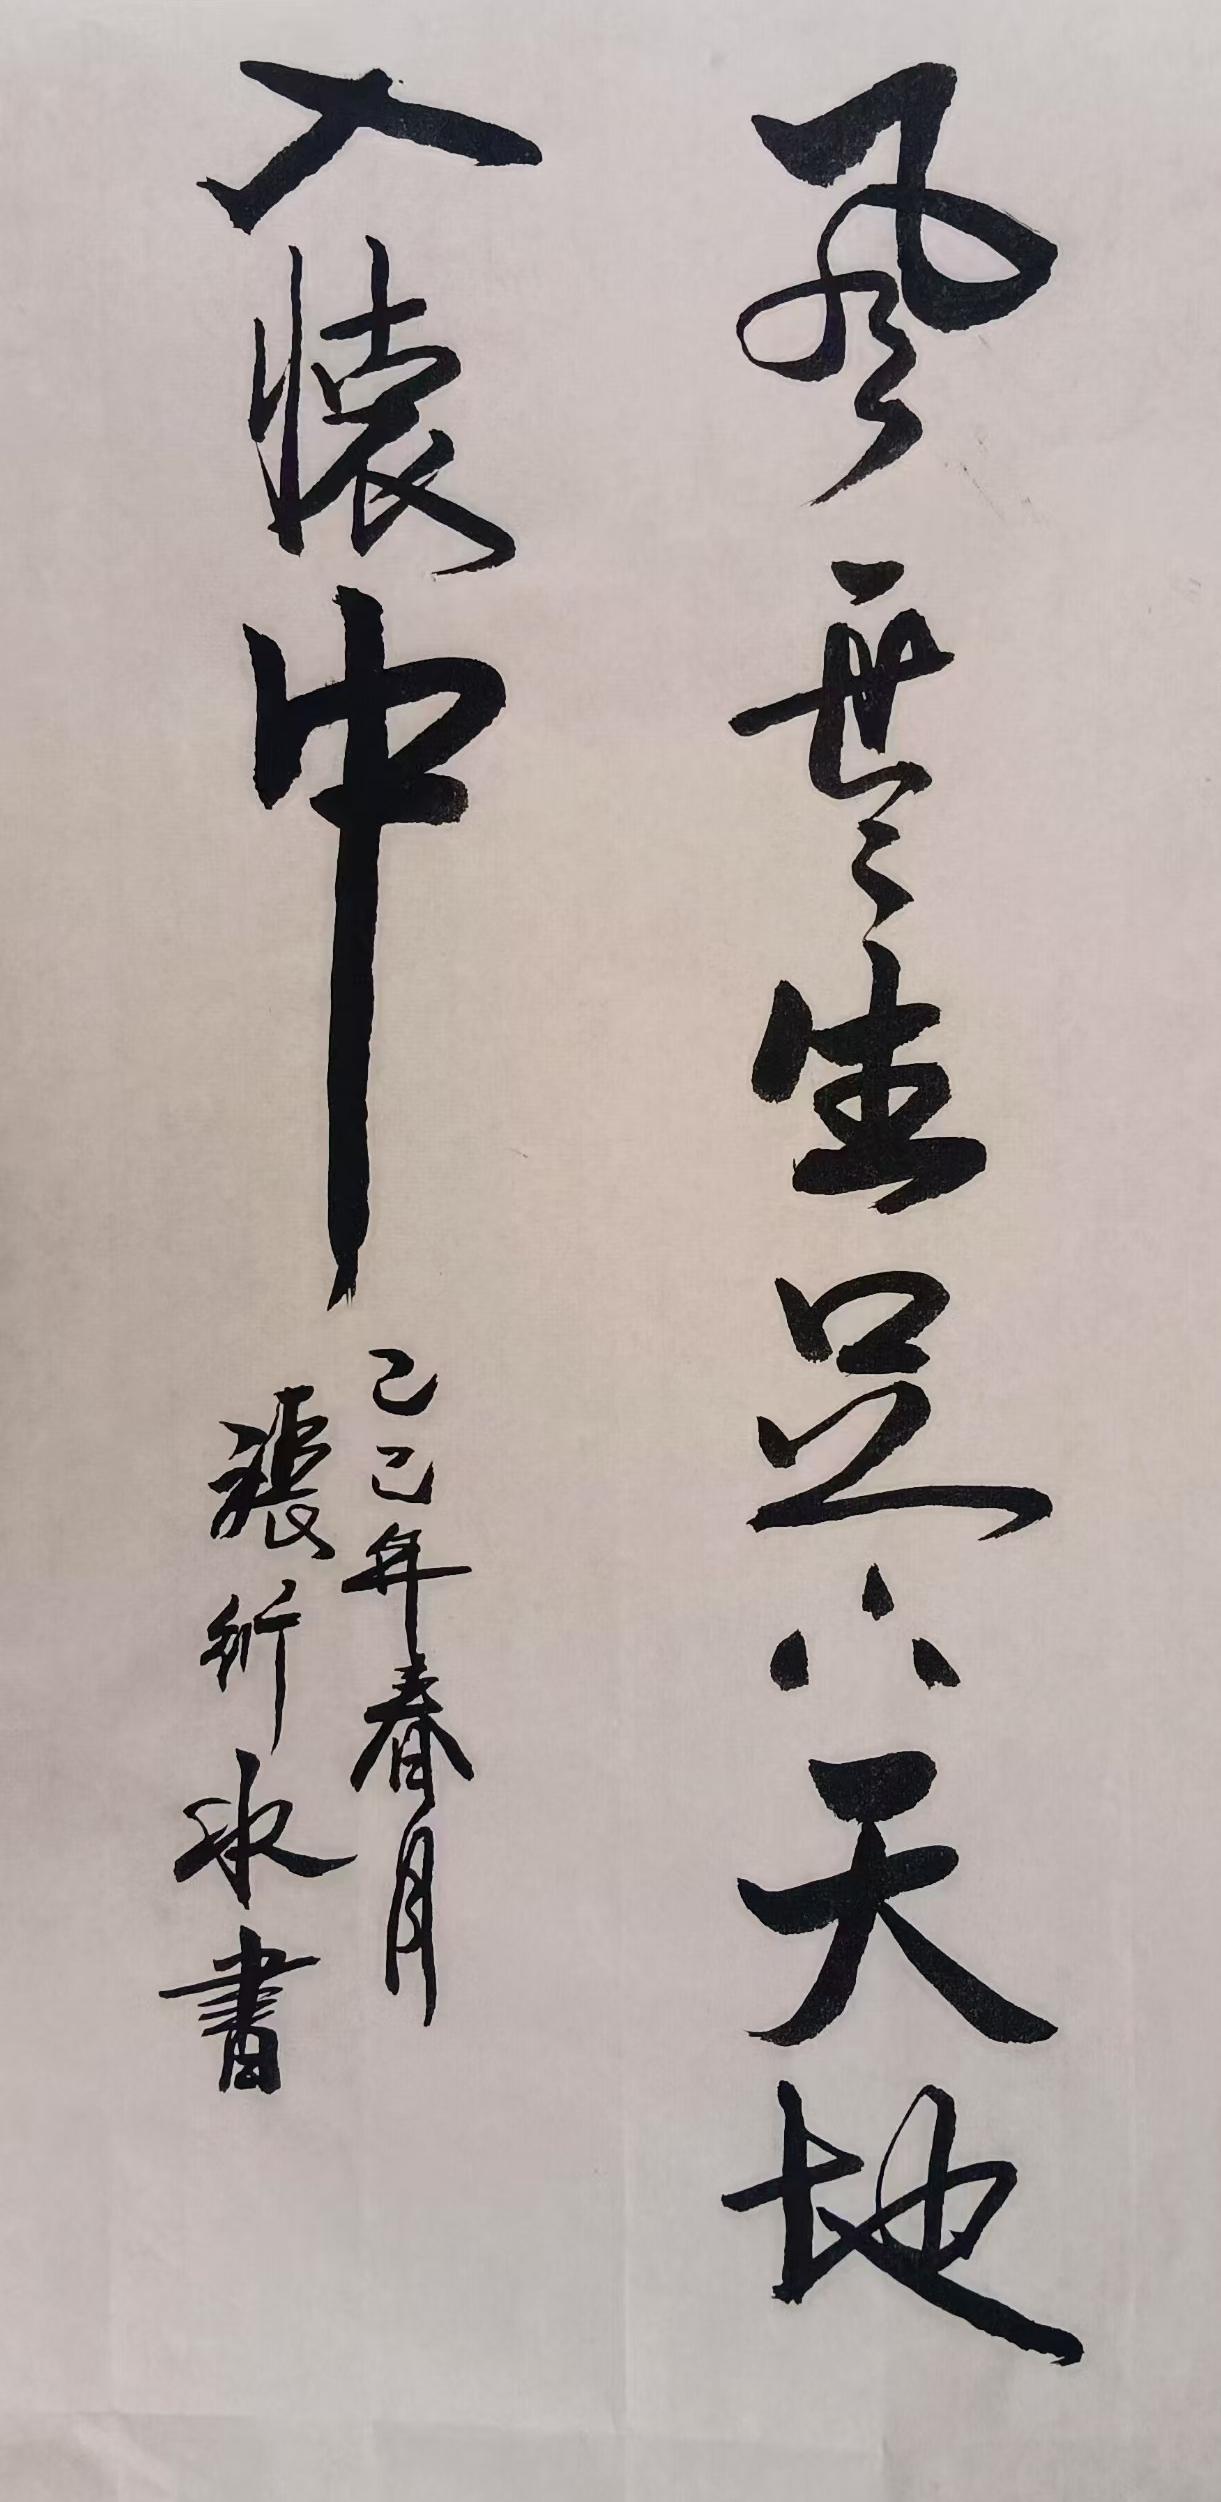 风云生足下天地
入懷中
乙巳年春月
張衍永書